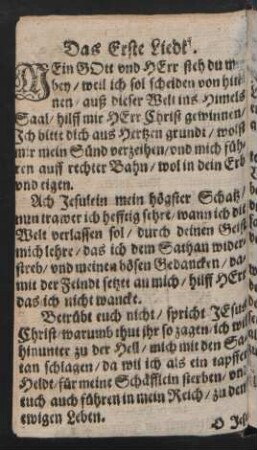 Das Erste Liedt.
MEin GOtt vnd HErr steh du
bey / weil ich sol scheiden von hin-
nen / auß dieser Welt ins Himels
Saal / hilff mir HErr Christ gewinnen /
Ich bitte dich aus Hertzen grundt / wolst
mir mein Sünd verzeihen / vnd mich füh-
ren auff rechter Bahn / wol in dein Erb
vnd eigen.
Ach Jesulein mein högster Schatz /
nun trawer ich hefftig sehre / wann ich die
Welt verlassen sol / durch deinen Geist
mich lehre / das ich dem Sathan wider-
streb / vnd meinen bösen Gedancken / da-
mit der Feindt setzt an mich / hilff HErr
das ich nicht wancke.
Betrübt euch nicht / spricht JEsus
Christ / warumb thut ihr so zagen / ich wil
hinunter zu der Hell / mich mit den Sa-
tan schlagen / da wil ich als ein tapffer
Heldt / für meine Schäfflein sterben / vnd
euch auch führen in mein Reich / zu dem
ewigen Leben.
O Jesu